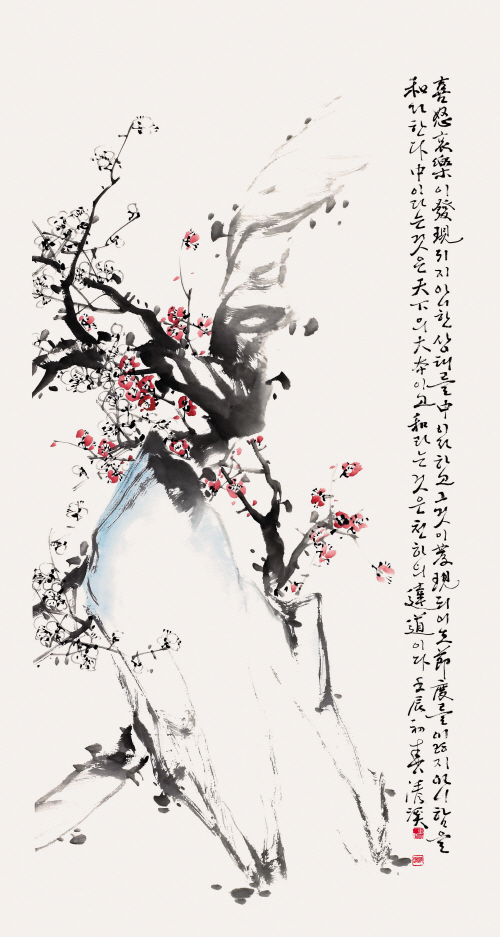 喜怒哀樂이 發現되지 아니한 상태를 中이라 하고 그것이 發現되어도 節度를 함을
和라 한다 中이라는 것은 天下의 大本이고 和라는 것은 천하의 達道이다 壬辰初春 淸溪